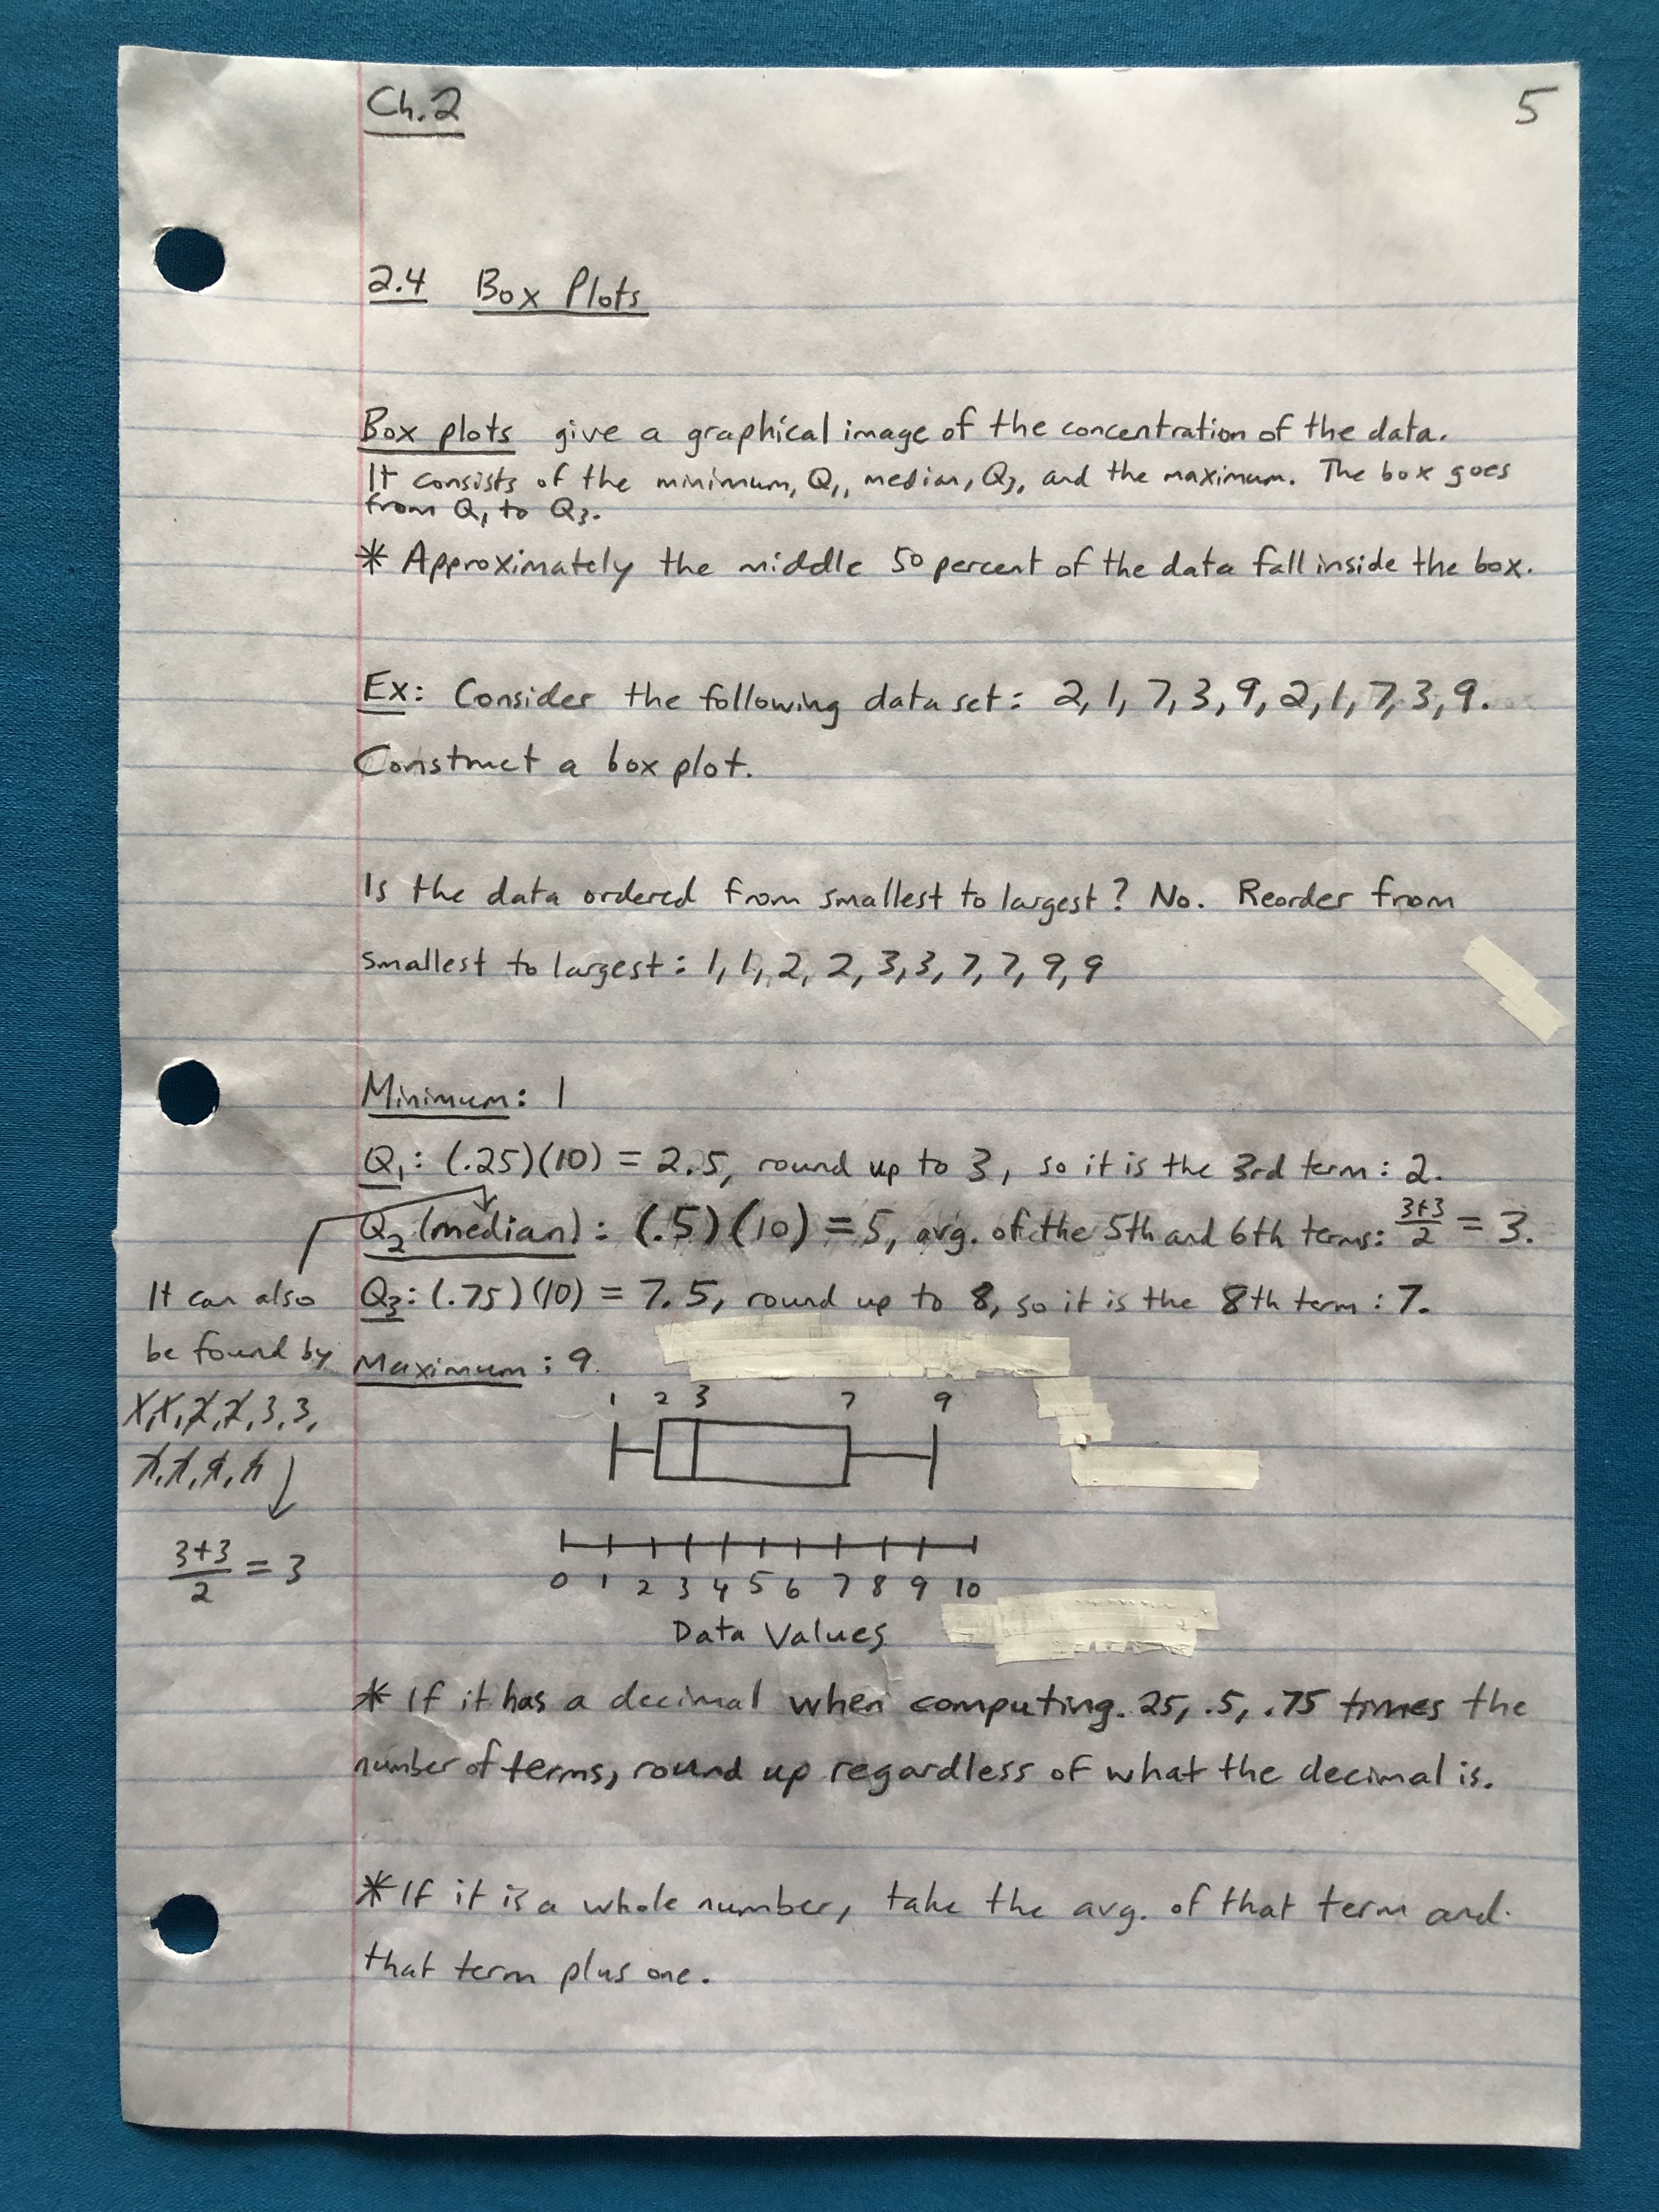 Ch.2
5
2.4 Box Plots
Box plots give a graphical image of the concentration of the data.
It consists of the minimum, Q₁, median, Q₃, and the maximum. The box goes
from Q₁ to Q₃.
* Approximately the middle 50 percent of the data fall inside the box.
Ex: Consider the following data set: 2, 1, 7, 3, 9, 2, 1, 7, 3, 9.
Construct a box plot.
Is the data ordered from smallest to largest? No. Reorder from
smallest to largest: 1, 1, 2, 2, 3, 3, 7, 7, 9, 9
Minimum: 1
Q₁: (.25)(10) = 2.5, round up to 3, so it is the 3rd term: 2.
Q₂ (median): (.5)(10) = 5, avg. of the 5th and 6th terms: 3+3/2 = 3.
Q₃: (.75)(10) = 7.5, round up to 8, so it is the 8th term: 7.
Maximum: 9.
It can also
be found by
1, 1, 2, 2, 3, 3,
7, 7, 9, 9
3+3/2 = 3
1 2 3 7 9
0 1 2 3 4 5 6 7 8 9 10
Data Values
* If it has a decimal when computing .25, .5, .75 times the
number of terms, round up regardless of what the decimal is.
* If it is a whole number, take the avg. of that term and
that term plus one.